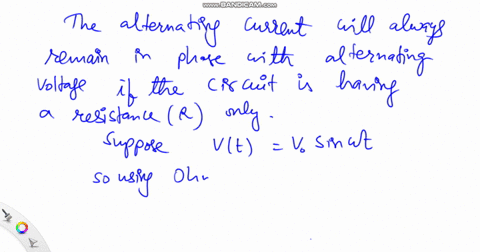 www.BANDICAM.com
The alternating current will always
remain in phase with alternating
voltage if the circuit is having
a resistance (R) only.
Suppose V(t) = V₀ sin ωt
so using Oh